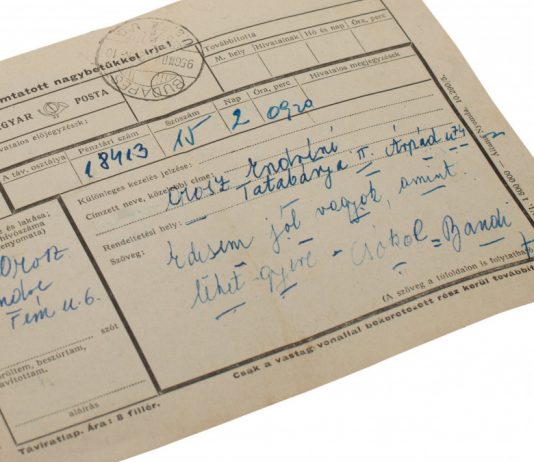 mtatott nagybetűkkel írja!
GYAR POSTA
Továbbította
M. hely Hivatalnak Hó és nap Óra, perc
vatalos előjegyzések:
Hivatalos megjegyzések
A táv. osztálya Pénztári szám Szószám Nap Óra, perc
18413 15 2 0920
Különleges kezelés jelzése:
Címzett neve, közelebbi címe:
Orosz Endréné
Rendeltetési hely: Tatabánya II Árpád u 74
Szöveg: Édesem jól vagyok, amint
lehet gyere - Csókol = Bandi
és lakása:
hívószáma
nyomata)
Orosz
ndre
Fém u. 6.
szót
örültem, beszúrtam,
avítottam.
aláírás
(A szöveg a túloldalon is folytatható
Csak a vastag vonallal bekeretezett rész kerül továbbít
Távíratlap. Ára: 8 fillér.